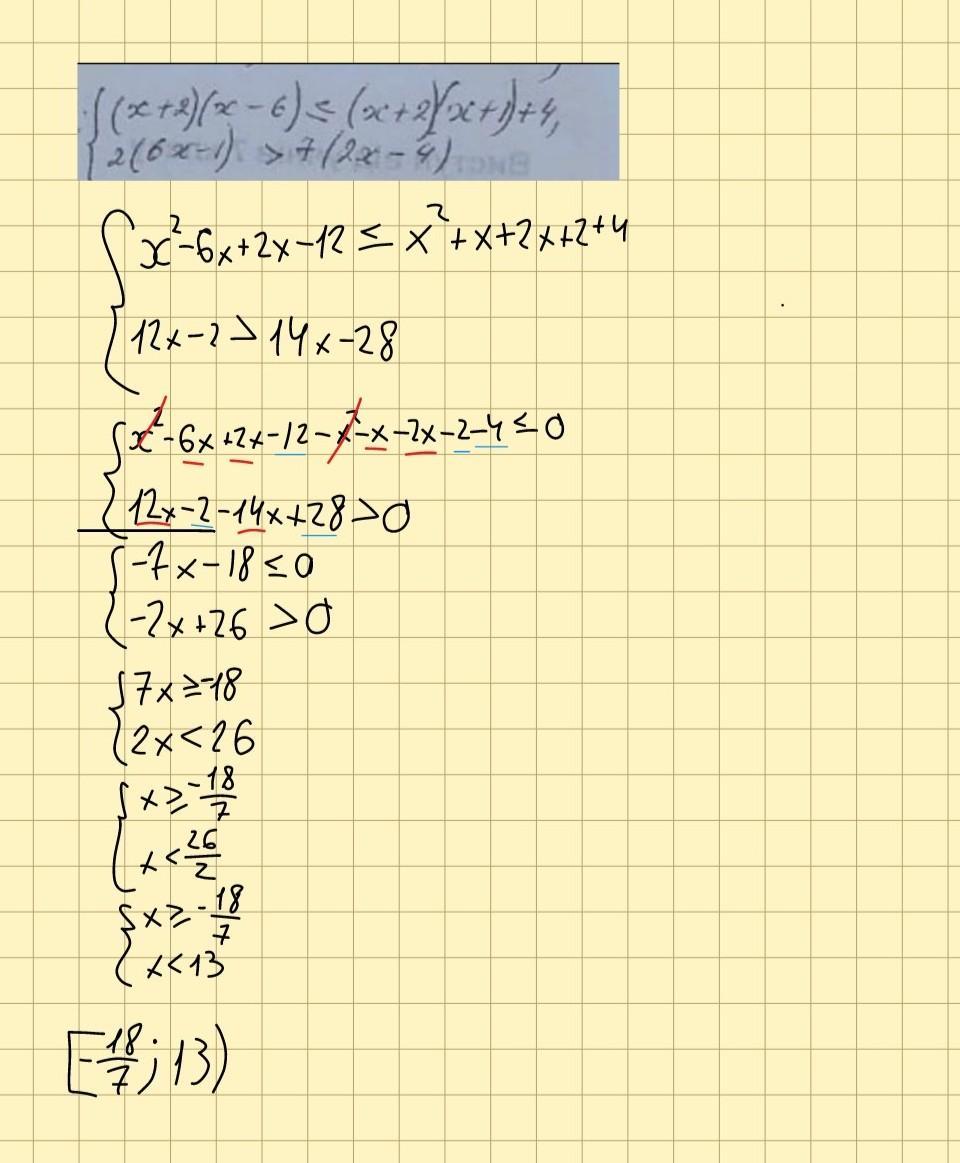 {(x+2)(x-6) ≤ (x+2)(x+1)+4,
{2(6x-1) > 7(2x-4)
{x²-6x+2x-12 ≤ x²+x+2x+2+4
{12x-2 > 14x-28
{x²-6x+2x-12-x²-x-2x-2-4 ≤ 0
{12x-2-14x+28 > 0
{-7x-18 ≤ 0
{-2x+26 > 0
{7x ≥ -18
{2x < 26
{x ≥ -18/7
{x < 26/2
{x ≥ -18/7
{x < 13
[-18/7; 13)